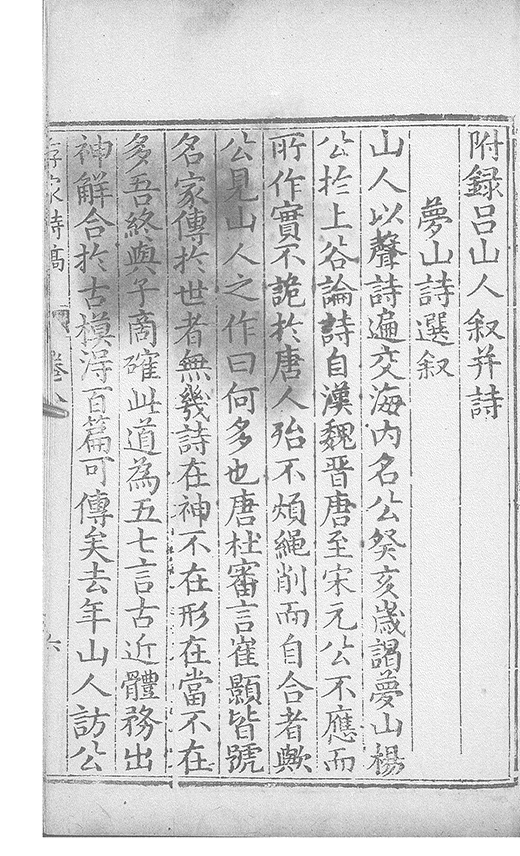 附録呂山人叙并詩
夢山詩選叙
山人以聲詩遍交海内名公癸亥歳謁夢山楊
公於上谷論詩自漢魏晋唐至宋元公不應而
所作實不詭於唐人殆不煩繩削而自合者歟
公見山人之作曰何多也唐杜審言崔顥皆號
名家傳於世者無幾詩在神不在形在當不在
多吾終與子商確此道為五七言古近體務出
神解合於古模得百篇可傳矣去年山人訪公
存家詩高
卷八
六